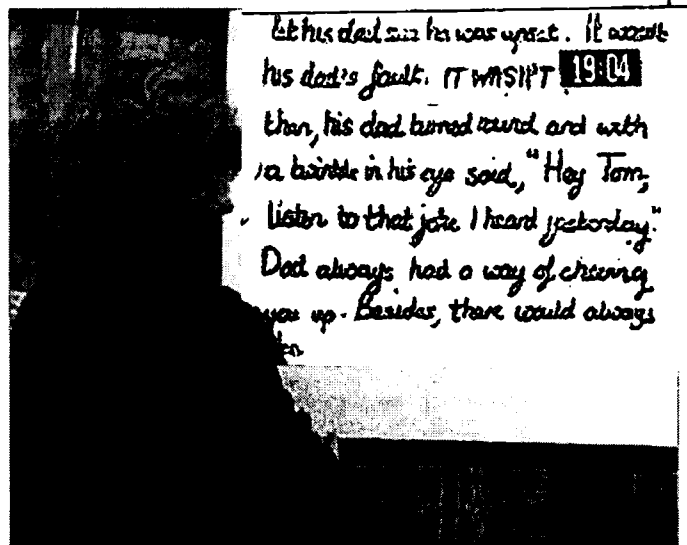 let his dad see he was upset. It wasn't
his dad's fault. IT WASN'T 19:04
then, his dad turned round and with
a twinkle in his eye said, "Hey Tom,
listen to that joke I heard yesterday."
Dad always had a way of cheering
you up. Besides, there would always